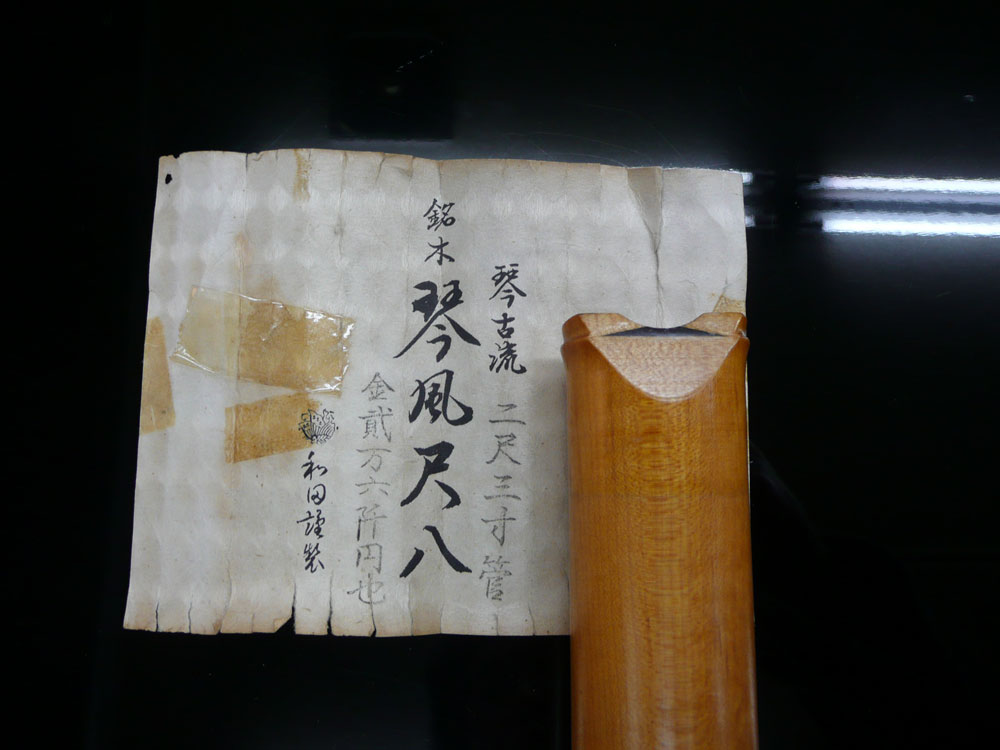 琴古流 二尺三寸管
銘木 琴風尺八
金貳万六阡円也
和田謹製